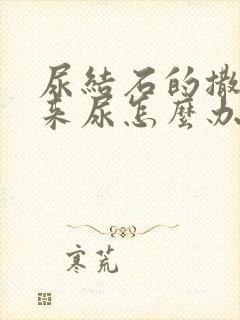 尿結石的撒
来尿怎麼办
寒荒